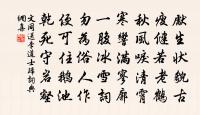 獻生狀貌古
瘦倦若老鶴
秋風唳清霄
寒響滿寥廓
一腹冰雪詞
勿為俗人作
徑可住鵝池
乾死守岩壑
文同送李道士歸詞典
網集